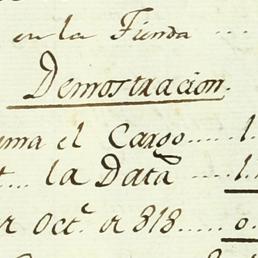 en la Tienda ...
Demostracion.
uma el Cargo..... 1.
... la Data ..... 1.
Oct.e de 818..... 0.